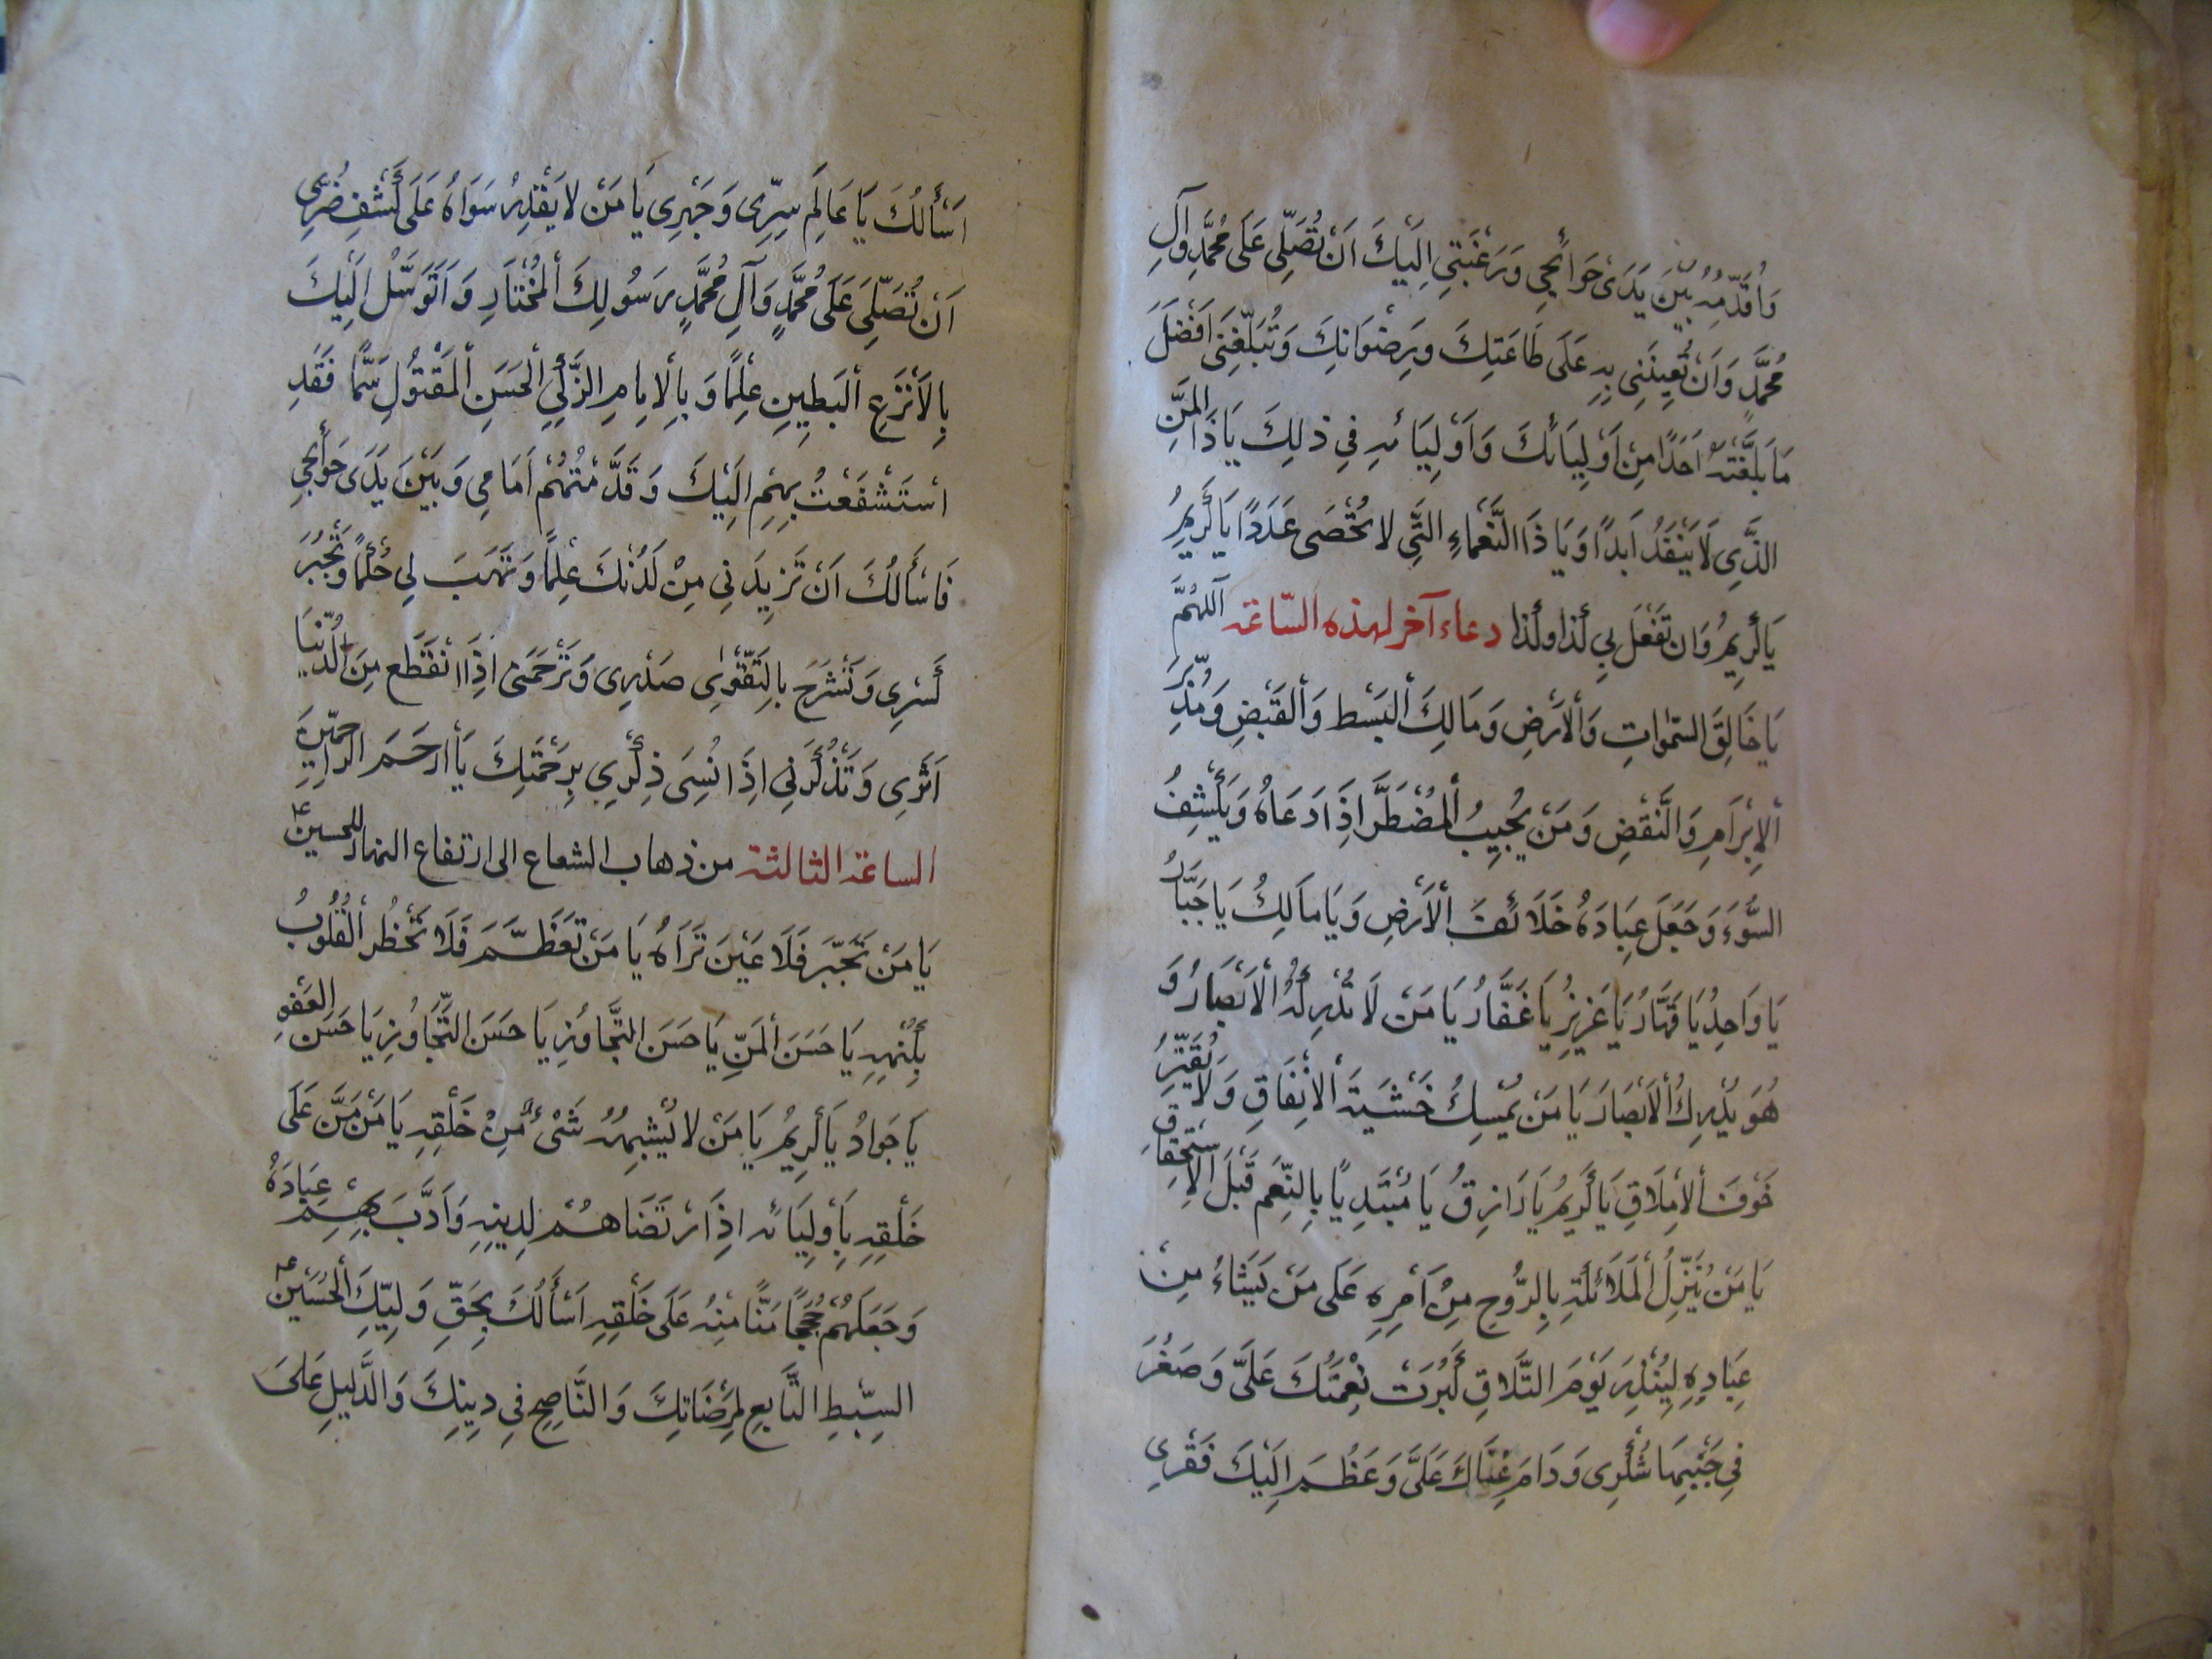 وَاُقَدِّمُهُ بَيْنَ يَدَىْ حَوَائِجِي وَرَغْبَتِي اِلَيْكَ اَنْ تُصَلِّىَ عَلَى مُحَمَّدٍ وَآلِ
مُحَمَّدٍ وَاَنْ تُعِينَنِى بِهِ عَلَى طَاعَتِكَ وَرِضْوَانِكَ وَتُبَلِّغَنِى اَفْضَلَ
مَا بَلَّغْتَهُ اَحَدًا مِنْ اَوْلِيَائِكَ وَاَوْلِيَائِهِ فِي ذٰلِكَ يَا ذَا الْمَنِّ
الَّذِى لَا يَنْفَدُ اَبَدًا وَيَا ذَا النَّعْمَاءِ الَّتِي لا تُحْصَى عَدَدًا يَا كَرِيمُ
يَا كَرِيمُ وَان تَفْعَلَ بِي كَذا وكَذا دعاء آخر لهذه السّاعة اَللّهُمَّ
يَا خَالِقَ السَّمٰوَاتِ وَالْاَرْضِ وَمَالِكَ الْبَسْطِ وَالْقَبْضِ وَمُدَبِّرَ
الْاِبْرَامِ وَالنَّقْضِ وَمَنْ يُجِيبُ الْمُضْطَرَّ اِذَا دَعَاهُ وَيَكْشِفُ
السُّوءَ وَجَعَلَ عِبَادَهُ خَلَائِفَ الْاَرْضِ وَيَا مَالِكُ يَا جَبَّارُ
يَا وَاحِدُ يَا قَهَّارُ يَا عَزِيزُ يَا غَفَّارُ يَا مَنْ لَا تُدْرِكُهُ الْاَبْصَارُ وَ
هُوَ يُدْرِكُ الْاَبْصَارَ يَا مَنْ يُمْسِكُ خَشْيَةَ الْاِنْفَاقِ وَلَا يُقَتِّرُ
خَوْفَ الْاِمْلَاقِ يَا كَرِيمُ يَا رَازِقُ يَا مُبْتَدِيًا بِالنِّعَمِ قَبْلَ الْاِسْتِحْقَاقِ
يَا مَنْ يُنَزِّلُ الْمَلَائِكَةَ بِالرُّوحِ مِنْ اَمْرِهِ عَلَى مَنْ يَشَاءُ مِنْ
عِبَادِهِ لِيُنْذِرَ يَوْمَ التَّلَاقِ كَبُرَتْ نِعْمَتُكَ عَلَىَّ وَصَغُرَ
فِي جَنْبِهَا شُكْرِى وَدَامَ غِنَاكَ عَلَىَّ وَعَظُمَ اِلَيْكَ فَقْرِى
اَسْأَلُكَ يَا عَالِمَ سِرِّى وَجَهْرِى يَا مَنْ لا يَقْدِرُ سَوَاهُ عَلَى كَشْفِ ضُرِّى
اَنْ تُصَلِّىَ عَلَى مُحَمَّدٍ وَآلِ مُحَمَّدٍ رَسُولِكَ الْمُخْتَارِ وَاَتَوَسَّلُ اِلَيْكَ
بِالْاَنْزَعِ الْبَطِينِ عِلْمًا وَبِالْاِمَامِ الزَّكِيِّ الْحَسَنِ الْمَقْتُولِ سَمًّا فَقَدِ
اسْتَشْفَعْتُ بِهِمْ اِلَيْكَ وَقَدَّمْتُهُمْ اَمَامِي وَبَيْنَ يَدَىْ حَوَائِجِي
فَاَسْأَلُكَ اَنْ تَزِيدَنِي مِنْ لَدُنْكَ عِلْمًا وَتَهَبَ لِي حُكْمًا وَتَجْبُرَ
كَسْرِى وَتَشْرَحَ بِالتَّقْوٰى صَدْرِى وَتَرْحَمَنِى اِذَا انْقَطَعَ مِنَ الدُّنْيَا
اَثَرِى وَتَذْكُرَنِي اِذَا نُسِىَ ذِكْرِي بِرَحْمَتِكَ يَا اَرْحَمَ الرَّاحِمِينَ
الساعة الثالثة من ذهاب الشعاع الى ارتفاع النهار للحسين ع
يَا مَنْ تَجَبَّرَ فَلَا عَيْنَ تَرَاهُ يَا مَنْ تَعَظَّمَ فَلَا تَخْطُرُ الْقُلُوبُ
بِكُنْهِهِ يَا حَسَنَ الْمَنِّ يَا حَسَنَ التَّجَاوُزِ يَا حَسَنَ التَّجَاوُزِ يَا حَسَنَ الْعَفْوِ
يَا جَوَادُ يَا كَرِيمُ يَا مَنْ لا يُشْبِهُهُ شَىْءٌ مِنْ خَلْقِهِ يَا مَنْ مَنَّ عَلَى
خَلْقِهِ بِاَوْلِيَائِهِ اِذِ ارْتَضَاهُمْ لِدِينِهِ وَاَدَّبَ بِهِمْ عِبَادَهُ
وَجَعَلَهُمْ حُجَجًا مَنًّا مِنْهُ عَلَى خَلْقِهِ اَسْأَلُكَ بِحَقِّ وَلِيِّكَ الْحُسَيْنِ ع
السِّبْطِ التَّابِعِ لِمَرْضَاتِكَ وَالنَّاصِحِ فِي دِينِكَ وَالدَّلِيلِ عَلَى